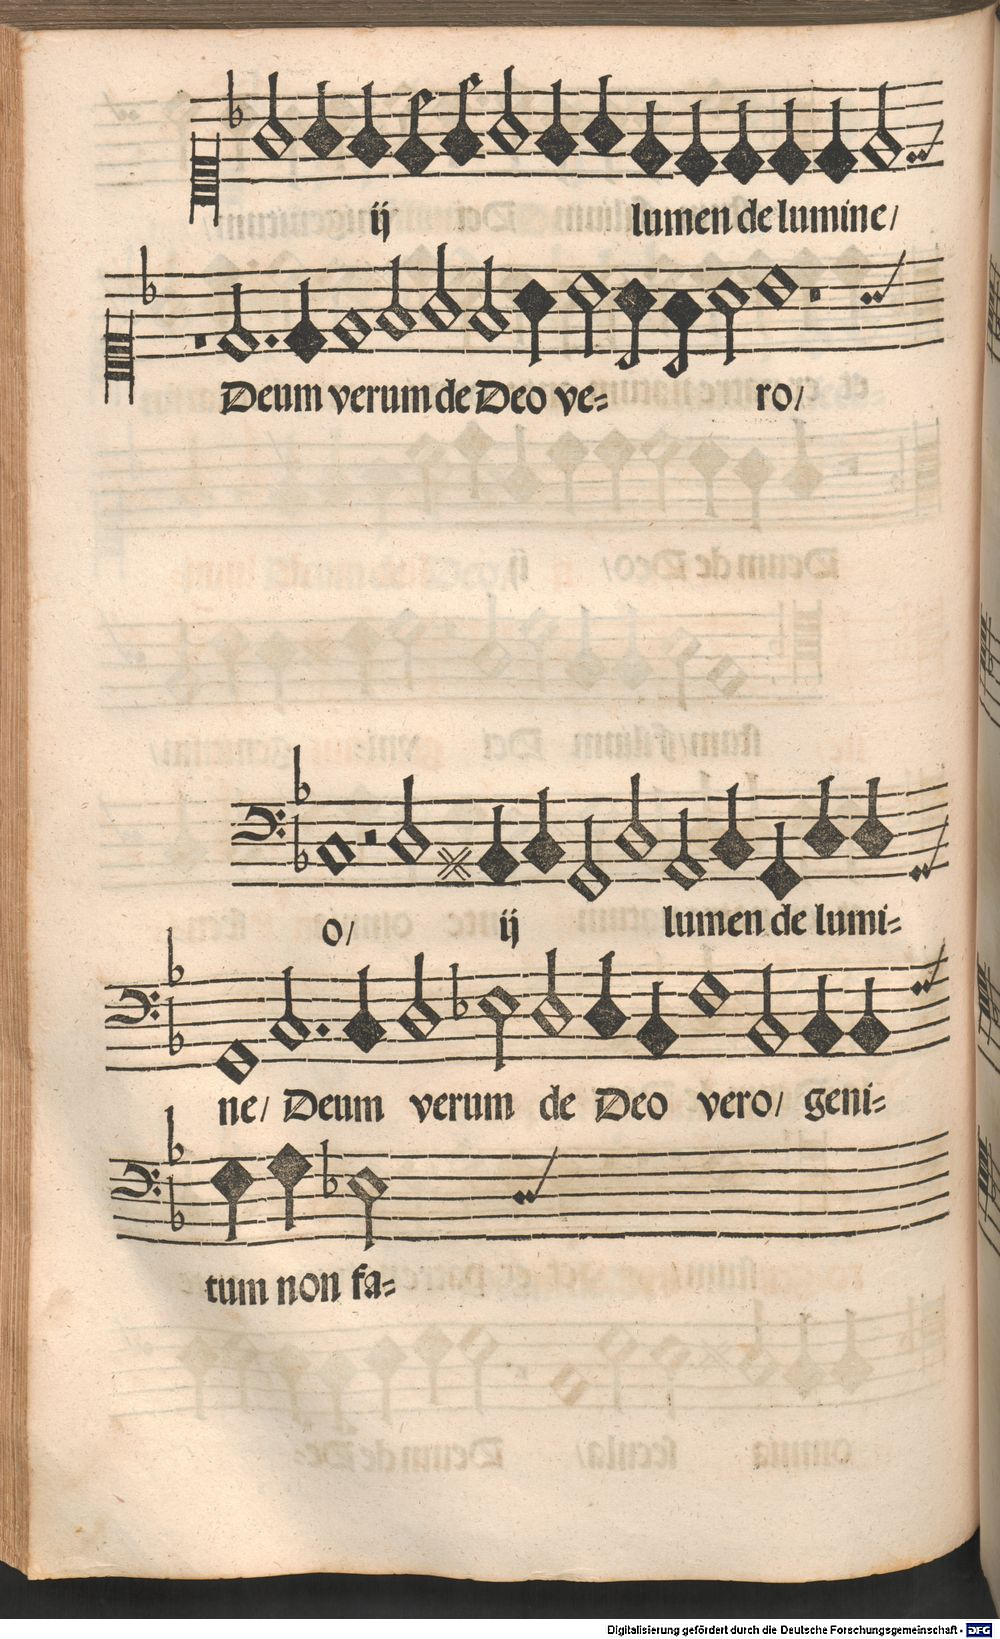 ij lumen de lumine/
Deum verum de Deo ve= ro/
o/ ij lumen de lumi=
ne/ Deum verum de Deo vero/ geni=
tum non fa=
Digitalisierung gefördert durch die Deutsche Forschungsgemeinschaft - DFG